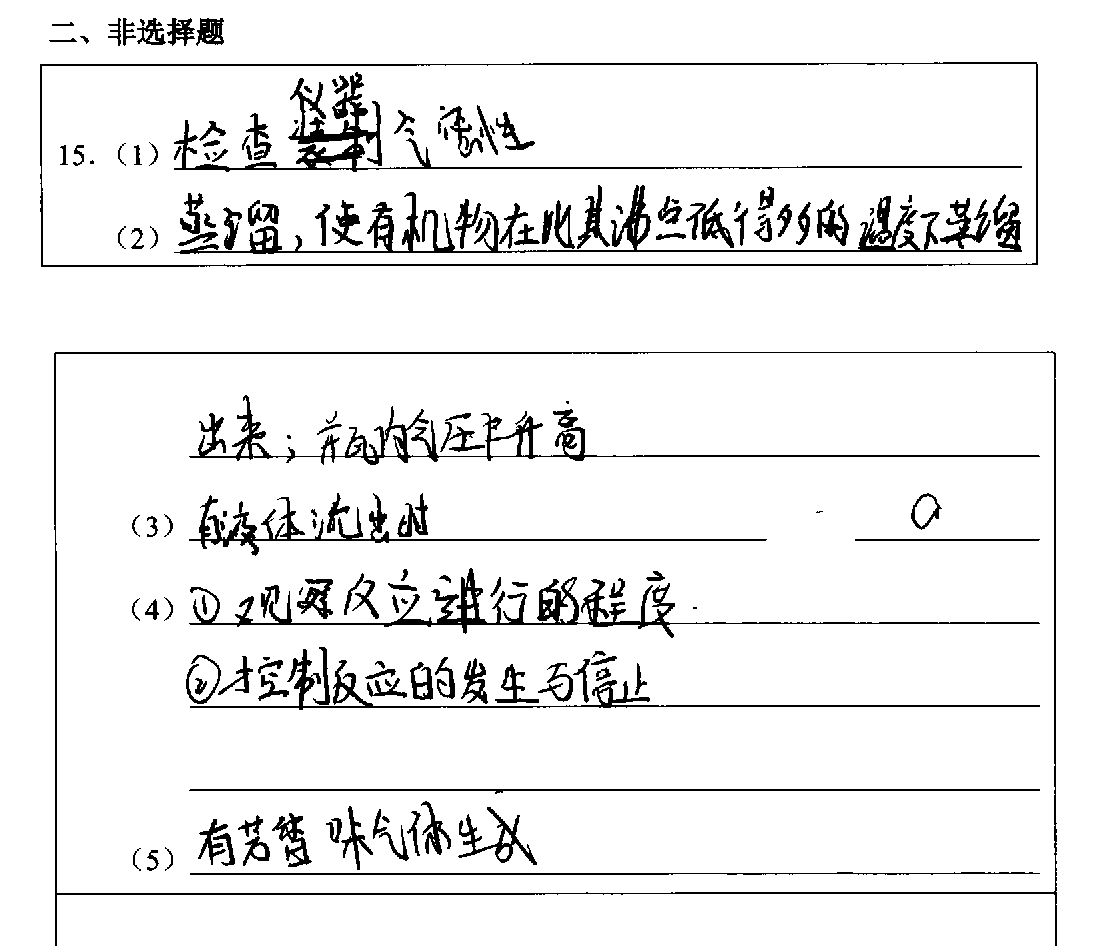 二、非选择题
15.（1）检查仪器气密性
（2）蒸馏，使有机物在比其沸点低得多的温度下蒸馏
出来；瓶内气压升高
（3）有液体流出时 a
（4）①观察反应进行的程度
②控制反应的发生与停止
（5）有芳香味气体生成